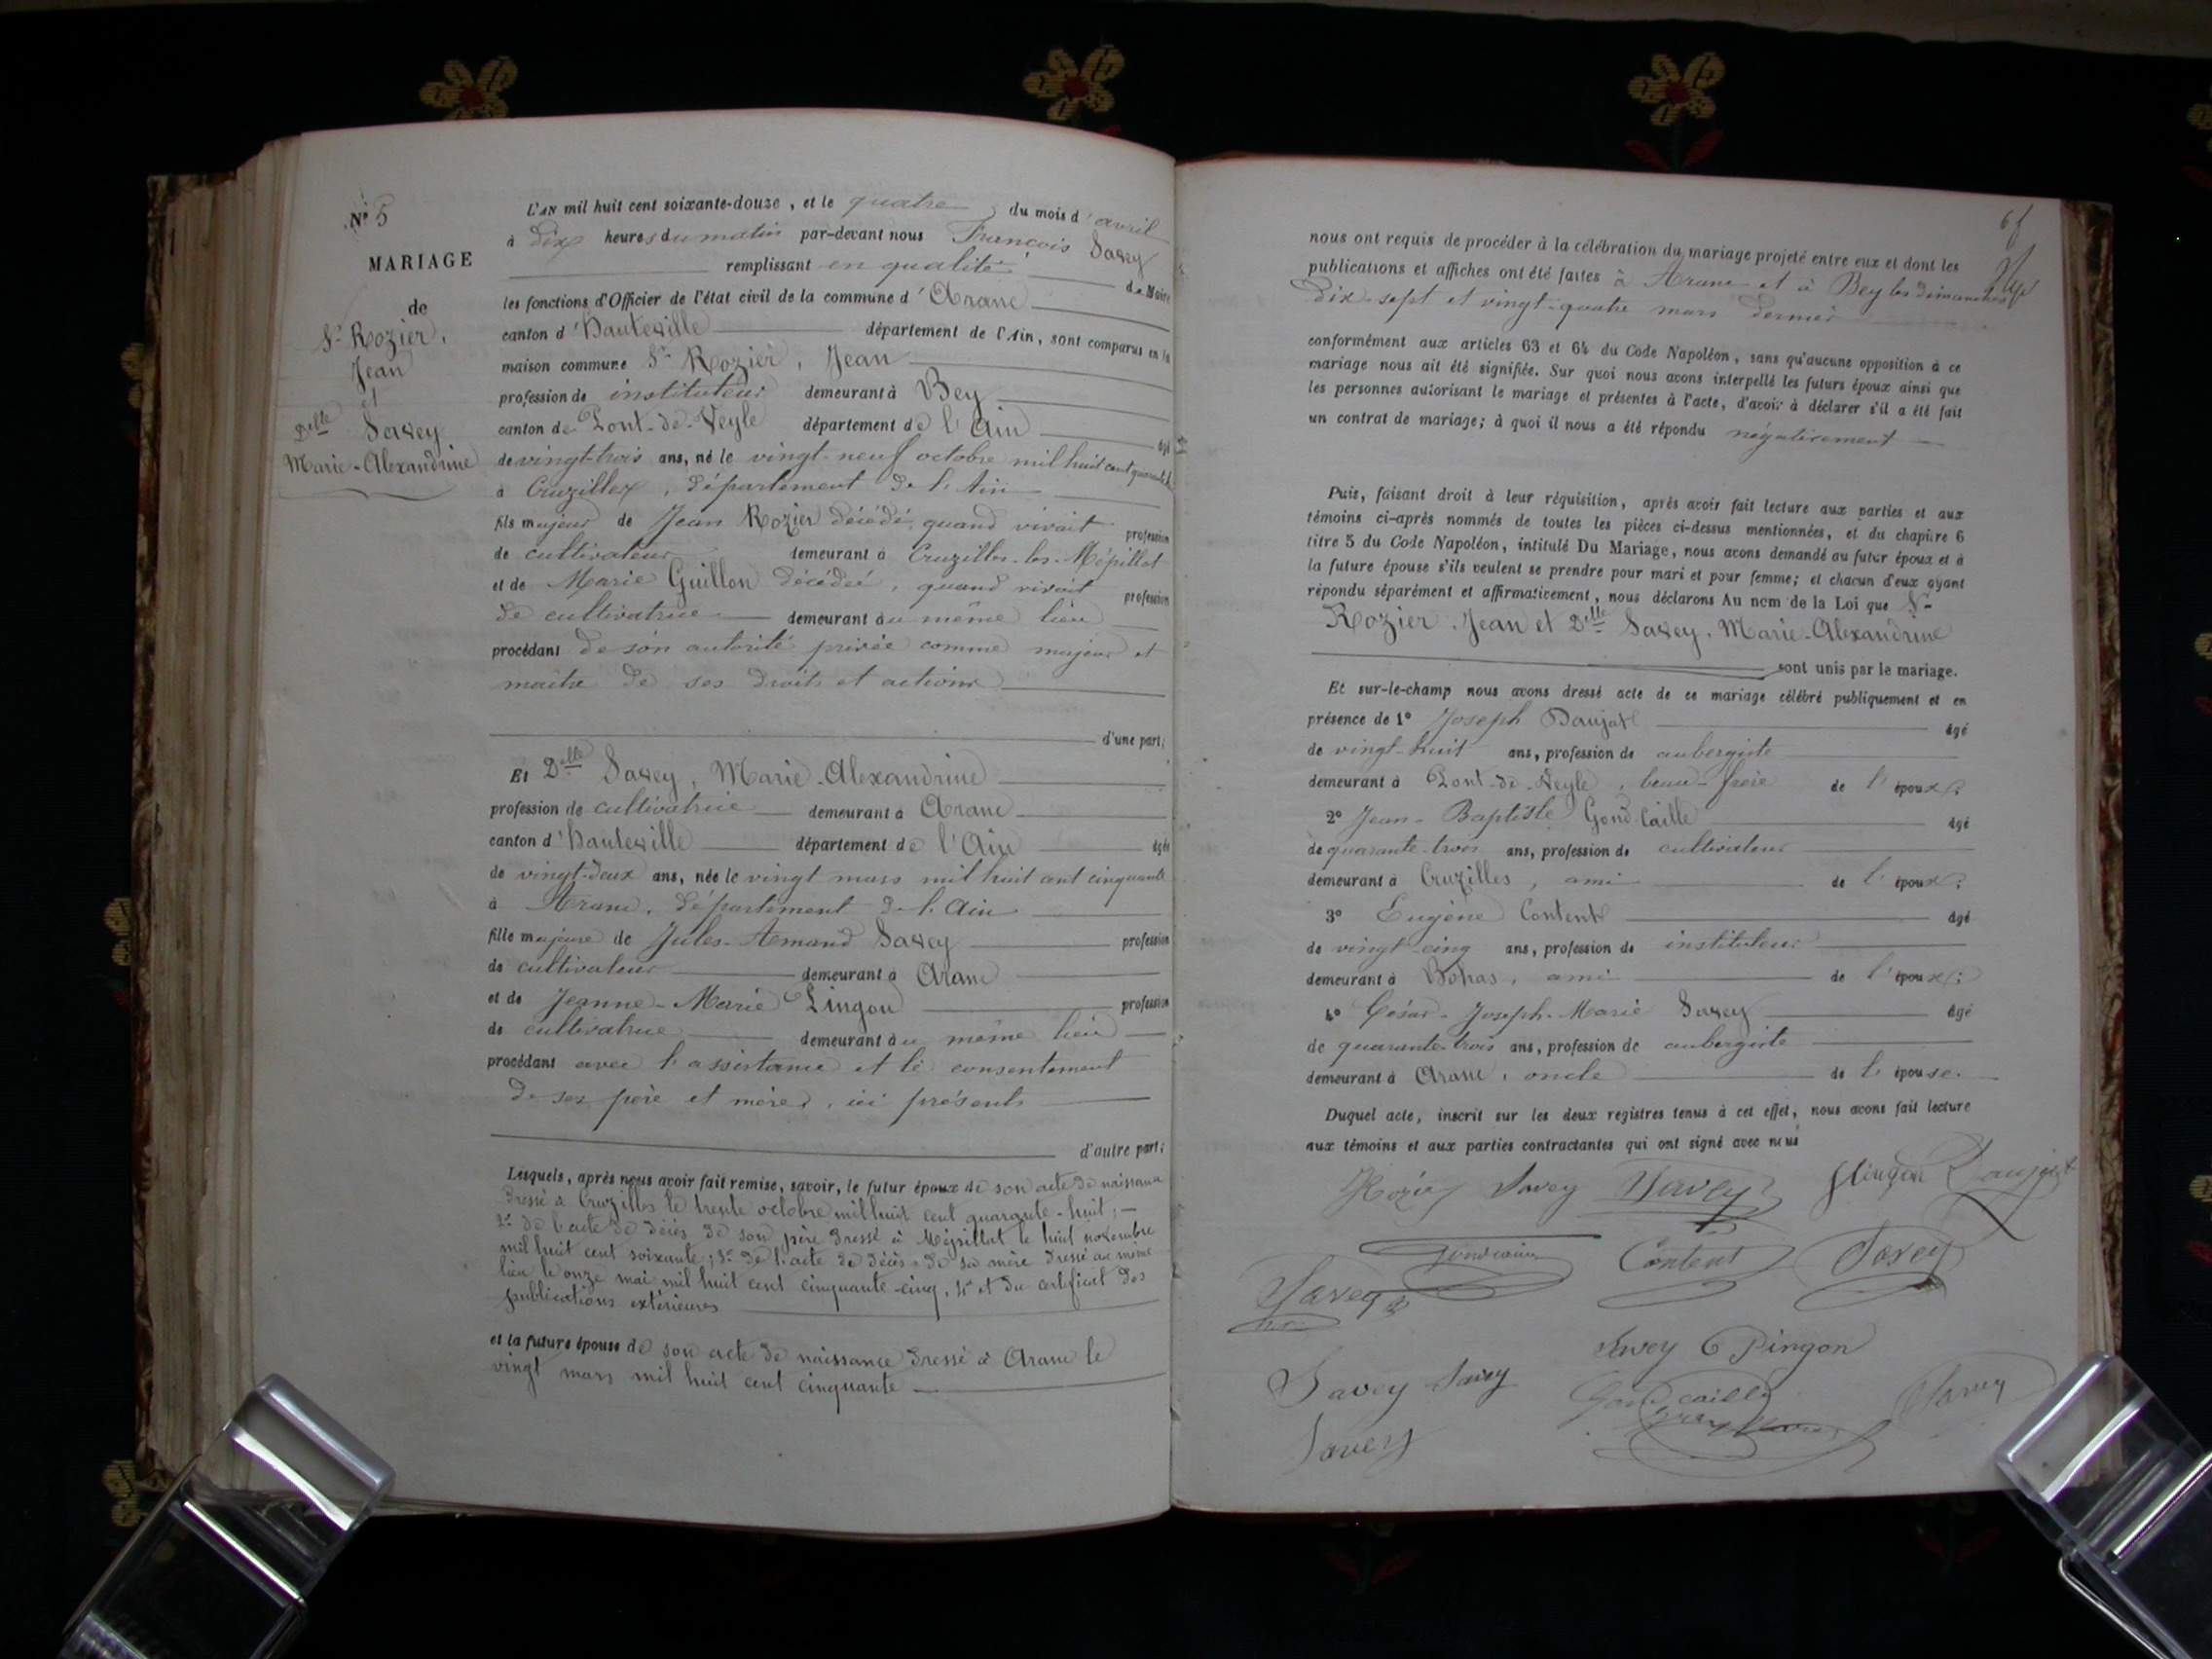 N° 5
MARIAGE
de
Sr Rozier,
Jean
et
Delle Savey
Marie-Alexandrine
L'AN mil huit cent soixante-douze, et le quatre du mois d'avril
à dix heures du matin par-devant nous François Savey
remplissant en qualité de Maire
les fonctions d'Officier de l'état civil de la commune d'Aranc
canton d'Hauteville département de l'Ain, sont comparus en la
maison commune Sr Rozier, Jean
profession de instituteur demeurant à Bey
canton de Pont-de-Veyle département de l'Ain âgé
de vingt-trois ans, né le vingt-neuf octobre mil huit cent quarante-huit
à Cruzilles, département de l'Ain
fils majeur de Jean Rozier décédé, quand vivait profession
de cultivateur demeurant à Cruzilles-les-Mépillat
et de Marie Guillon décédée, quand vivait profession
de cultivatrice demeurant au même lieu
procédant de son autorité privée comme majeur et
maître de ses droits et actions
d'une part;
Et Delle Savey, Marie-Alexandrine
profession de cultivatrice demeurant à Aranc
canton d'Hauteville département de l'Ain âgée
de vingt-deux ans, née le vingt mars mil huit cent cinquante
à Aranc, département de l'Ain
fille majeure de Jules-Armand Savey profession
de cultivateur demeurant à Aranc
et de Jeanne-Marie Pingon profession
de cultivatrice demeurant au même lieu
procédant avec l'assistance et le consentement
de ses père et mère, ici présents
d'autre part;
Lesquels, après nous avoir fait remise, savoir, le futur époux de son acte de naissance
dressé à Cruzilles le trente octobre mil huit cent quarante-huit;
2° de l'acte de décès de son père dressé à Mépillat le huit novembre
mil huit cent soixante; 3° de l'acte de décès de sa mère dressé au même
lieu le onze mai mil huit cent cinquante-cinq, 4° et du certificat des
publications extérieures
et la future épouse de son acte de naissance dressé à Aranc le
vingt mars mil huit cent cinquante
nous ont requis de procéder à la célébration du mariage projeté entre eux et dont les
publications et affiches ont été faites à Aranc et à Bey les dimanches
dix-sept et vingt-quatre mars dernier
conformément aux articles 63 et 64 du Code Napoléon, sans qu'aucune opposition à ce
mariage nous ait été signifiée. Sur quoi nous avons interpellé les futurs époux ainsi que
les personnes autorisant le mariage et présentes à l'acte, d'avoir à déclarer s'il a été fait
un contrat de mariage; à quoi il nous a été répondu négativement
Puis, faisant droit à leur réquisition, après avoir fait lecture aux parties et aux
témoins ci-après nommés de toutes les pièces ci-dessus mentionnées, et du chapitre 6
titre 5 du Code Napoléon, intitulé Du Mariage, nous avons demandé au futur époux et à
la future épouse s'ils veulent se prendre pour mari et pour femme; et chacun d'eux ayant
répondu séparément et affirmativement, nous déclarons Au nom de la Loi que Sr
Rozier Jean et Delle Savey, Marie-Alexandrine
sont unis par le mariage.
Et sur-le-champ nous avons dressé acte de ce mariage célébré publiquement et en
présence de 1° Joseph Daujat âgé
de vingt-huit ans, profession de aubergiste
demeurant à Pont-de-Veyle, beau-frère de l'époux;
2° Jean-Baptiste Gondcaille âgé
de quarante-trois ans, profession de cultivateur
demeurant à Cruzilles, ami de l'époux;
3° Eugène Content âgé
de vingt-cinq ans, profession de instituteur
demeurant à Bohas, ami de l'époux;
4° César-Joseph-Marie Savey âgé
de quarante-trois ans, profession de aubergiste
demeurant à Aranc, oncle de l'épouse.
Duquel acte, inscrit sur les deux registres tenus à cet effet, nous avons fait lecture
aux témoins et aux parties contractantes qui ont signé avec nous
Rozier Savey Savey Pingon Daujat
Gondcaille Content Savey
Savey
Savey C Pingon
Savey Savey Gondcaille Savey
Savey